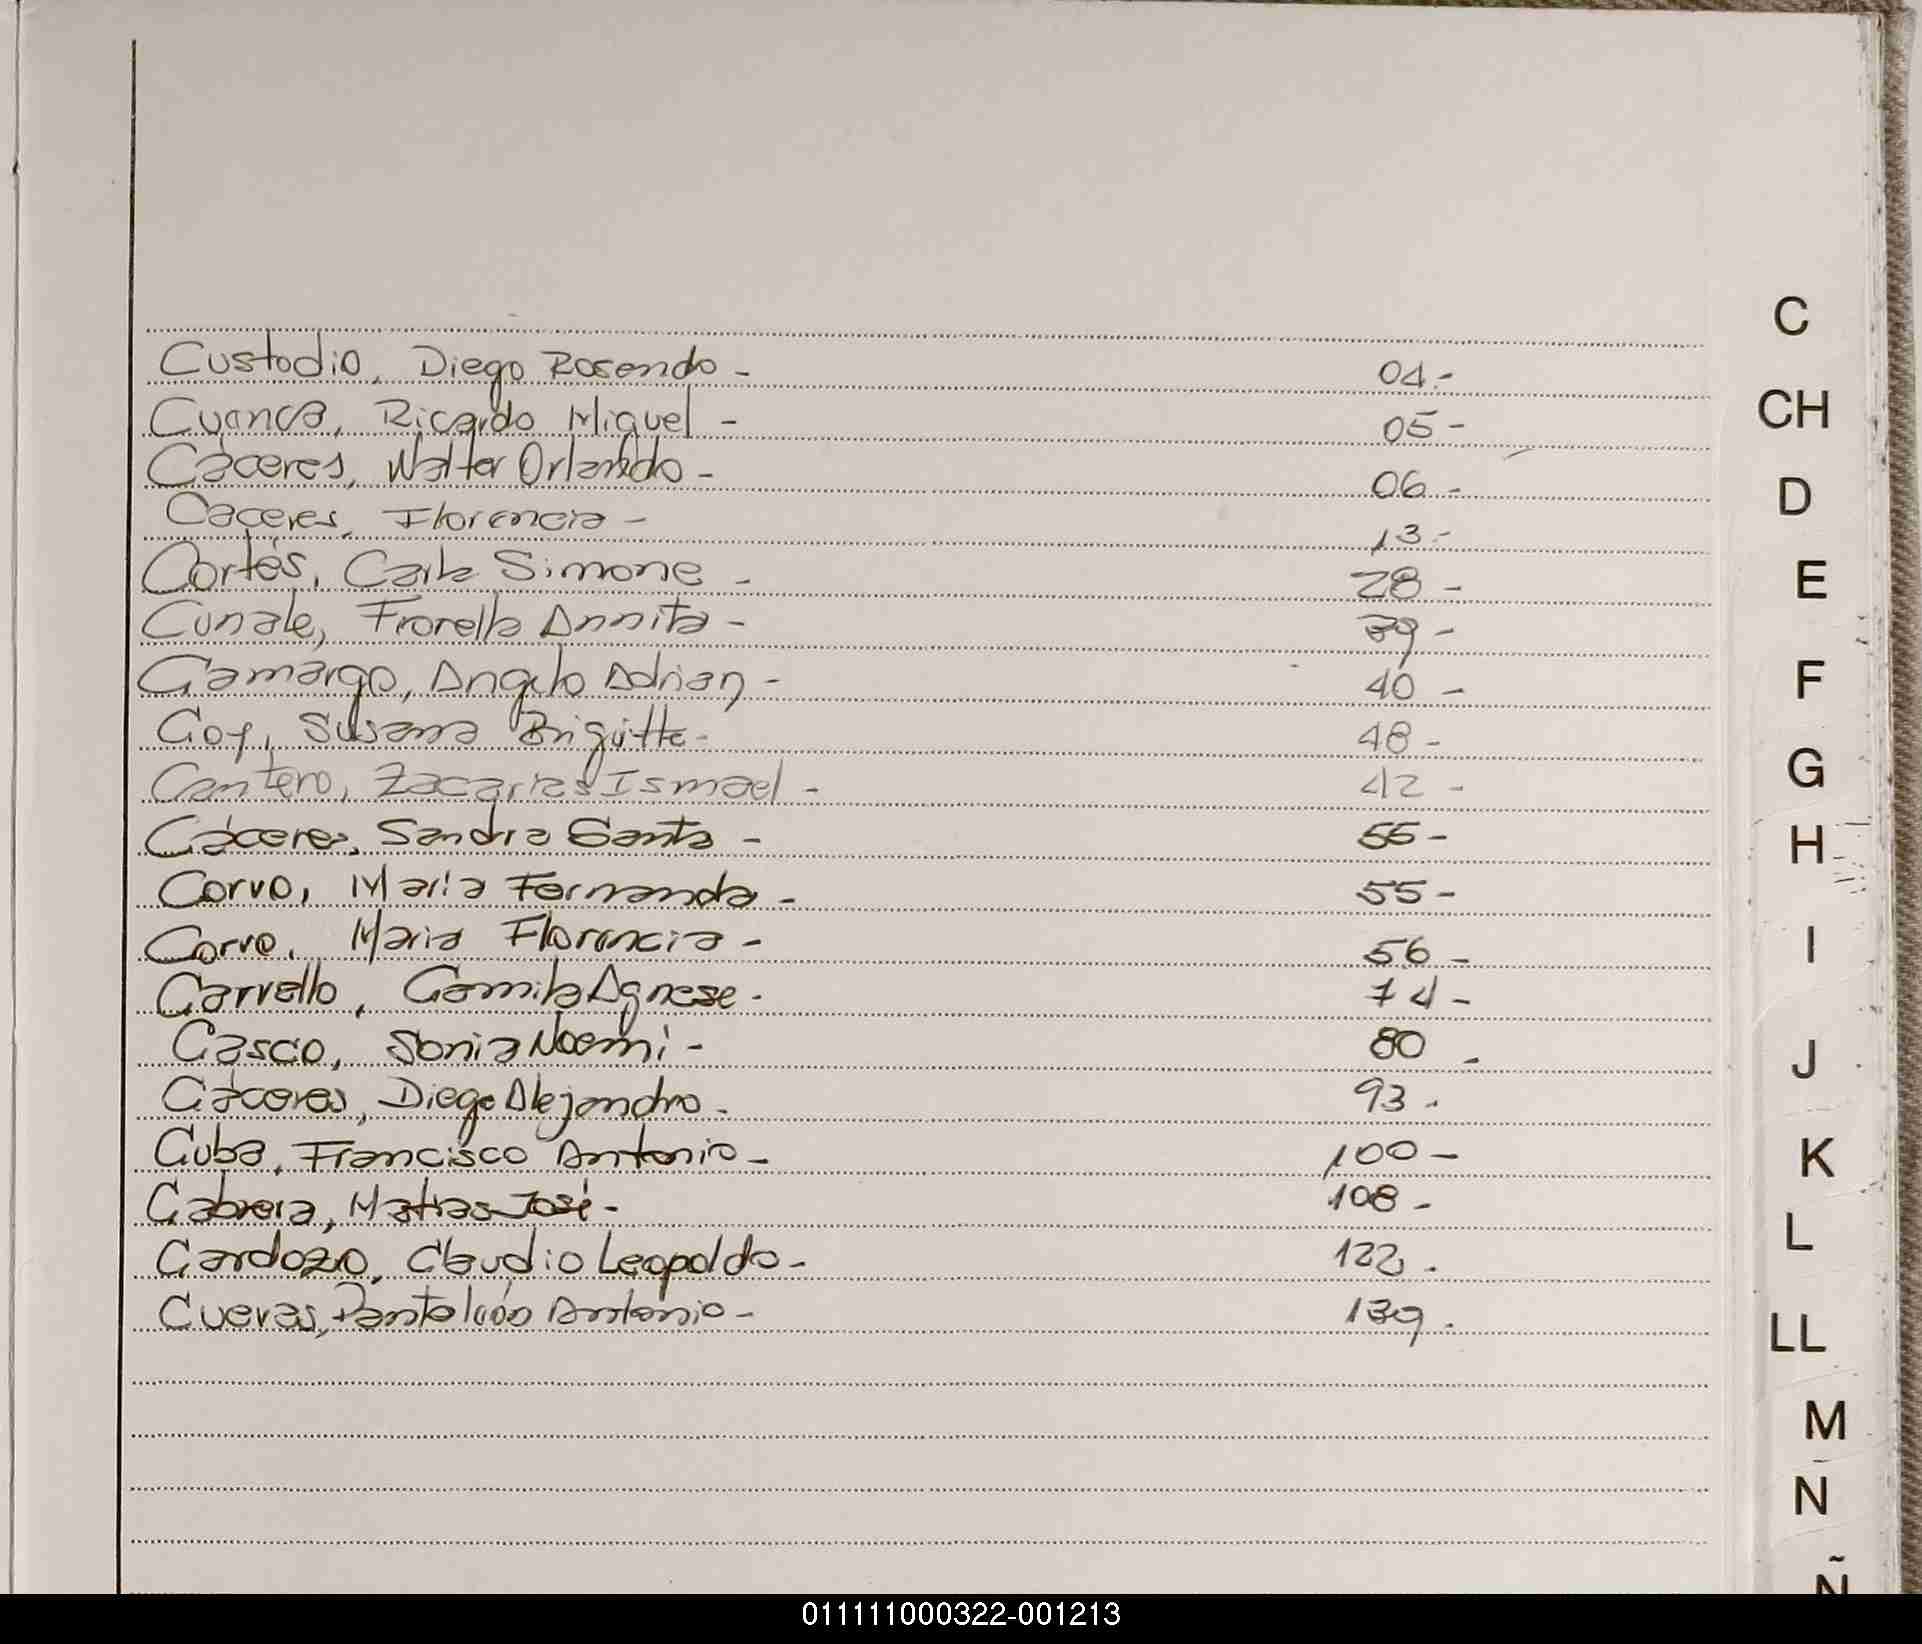 Custodio, Diego Rosendo - 04.-
Cuanca, Ricardo Miguel - 05-
Cáceres, Walter Orlando - 06-
Caceres, Florencia - 13-
Cortés, Carla Simone - 28-
Cunale, Fiorella Annita - 39-
Camargo, Angelo Adrian - 40-
Coy, Susana Brigitte- 48-
Cantero, Zacarias Ismael - 42-
Cáceres, Sandra Santa - 55-
Corvo, Maria Fernanda - 55-
Corvo, Maria Florencia - 56-
Carvallo, Camila Agnese - 74-
Casco, Sonia Noemi - 80-
Cáceres, Diego Alejandro - 93-
Cuba, Francisco Antonio - 100-
Cabrera, Matias José - 108-
Cardozo, Claudio Leopoldo - 122.
Cuevas, Pantaleón Antonio - 139.
C
CH
D
E
F
G
H
I
J
K
L
LL
M
N
Ñ
011111000322-001213